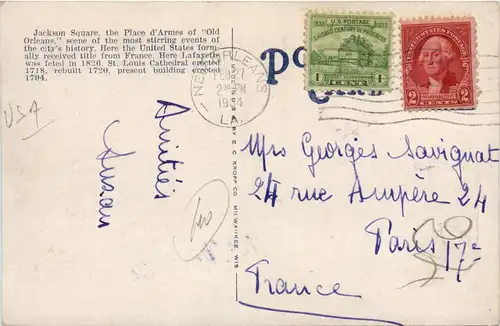 Jackson Square, the Place d'Armes of "Old
Orleans," scene of the most stirring events of
the city's history. Here the United States form-
ally received title from France. Here Lafayette
was feted in 1826. St. Louis Cathedral erected
1718, rebuilt 1720, present building erected
1794.
USA
Amitiés
Susan
E. C. KROPP CO. MILWAUKEE, WIS
NEW ORLEANS
1934
LA.
1833 U.S. POSTAGE 1933
CHICAGO CENTURY OF PROGRESS
1 CENT 1
UNITED STATES POSTAGE
2 CENTS 2
Mrs Georges Savignat
24 rue Ampère 24
Paris 17e
France